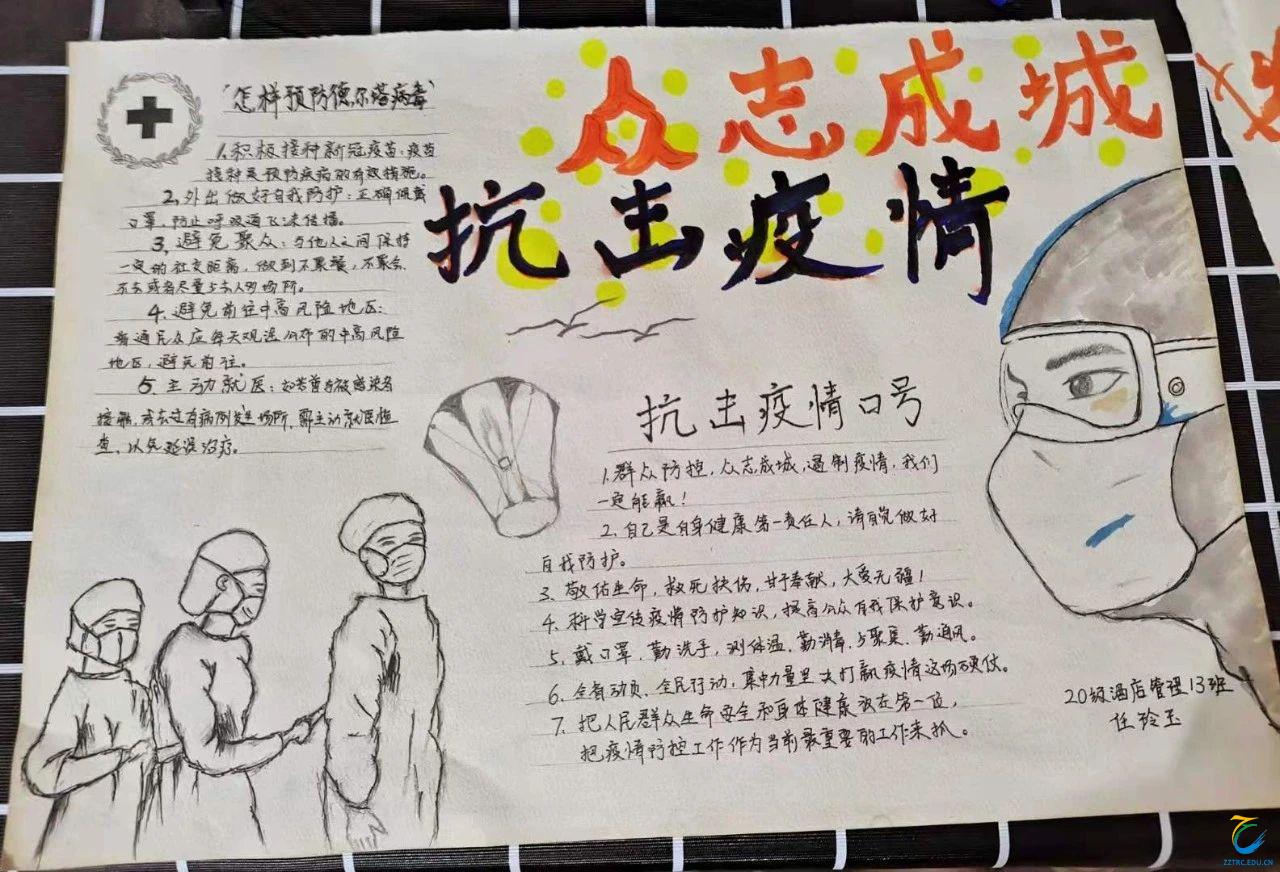 众志成城
抗击疫情
"怎样预防德尔塔病毒"
1.积极接种新冠疫苗：疫苗
接种是预防疾病的有效措施。
2.外出做好自我防护：正确佩戴
口罩，防止呼吸道飞沫传播。
3.避免聚众：与他人之间保持
一定的社交距离，做到不聚餐，不聚会，
不去或者尽量少去人多场所。
4.避免前往中高风险地区：
普通民众应每天观注公布的中高风险
地区，避免前往。
5.主动就医：如若曾与被感染者
接触，或去过有病例发生场所，需主动就医检
查，以免延误治疗。
抗击疫情口号
1.群众防控，众志成城，遏制疫情，我们
一定能赢！
2.自己是自身健康第一责任人，请自觉做好
自我防护。
3.敬佑生命，救死扶伤，甘于奉献，大爱无疆！
4.科学宣传疫情防护知识，提高公众自我保护意识。
5.戴口罩，勤洗手，测体温，勤消毒，少聚集，勤通风。
6.全省动员、全民行动，集中力量坚决打赢疫情这场硬仗。
7.把人民群众生命安全和身体健康放在第一位，
把疫情防控工作作为当前最重要的工作来抓。
20级酒店管理13班
任玲玉
ZZTRC.EDU.CN